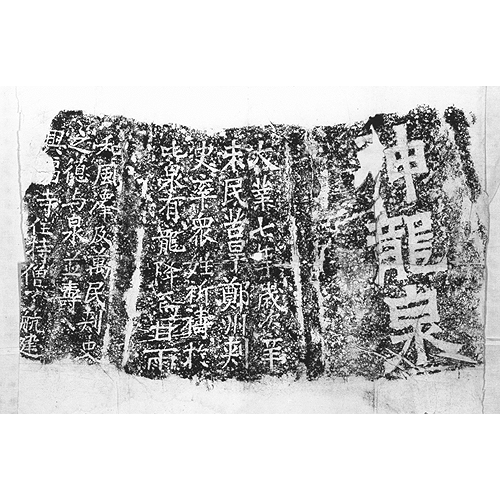 神龍泉
大業七年歲次辛
未民苦旱鄭州刺
史率衆姓祈禱於
此泉有龍降焉甘雨
和風澤及萬民刺史
之德与泉並壽
寺住持僧航建